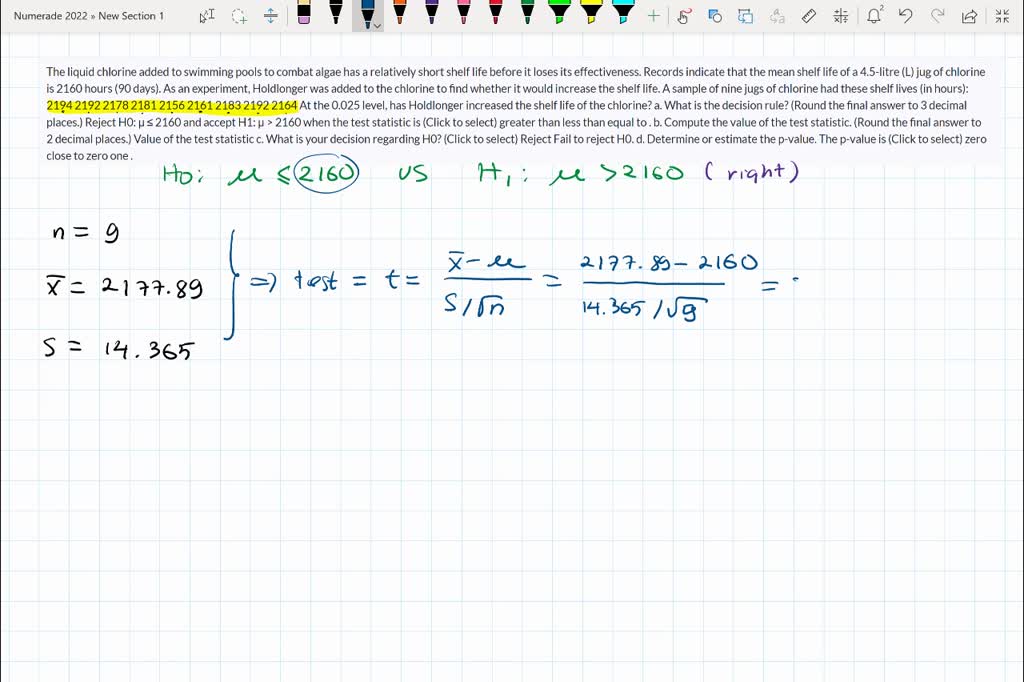 Numerade 2022 » New Section 1
2
The liquid chlorine added to swimming pools to combat algae has a relatively short shelf life before it loses its effectiveness. Records indicate that the mean shelf life of a 4.5-litre (L) jug of chlorine
is 2160 hours (90 days). As an experiment, Holdlonger was added to the chlorine to find whether it would increase the shelf life. A sample of nine jugs of chlorine had these shelf lives (in hours):
2194 2192 2178 2181 2156 2161 2183 2192 2164 At the 0.025 level, has Holdlonger increased the shelf life of the chlorine? a. What is the decision rule? (Round the final answer to 3 decimal
places.) Reject H0: μ ≤ 2160 and accept H1: μ > 2160 when the test statistic is (Click to select) greater than less than equal to . b. Compute the value of the test statistic. (Round the final answer to
2 decimal places.) Value of the test statistic c. What is your decision regarding H0? (Click to select) Reject Fail to reject H0. d. Determine or estimate the p-value. The p-value is (Click to select) zero
close to zero one .
Ho: μ ≤ 2160 vs H1: μ > 2160 (right)
n = 9
x̄ = 2177.89
S = 14.365
⇒ test = t = x̄ - μ / S/√n = 2177.89 - 2160 / 14.365/√9 =